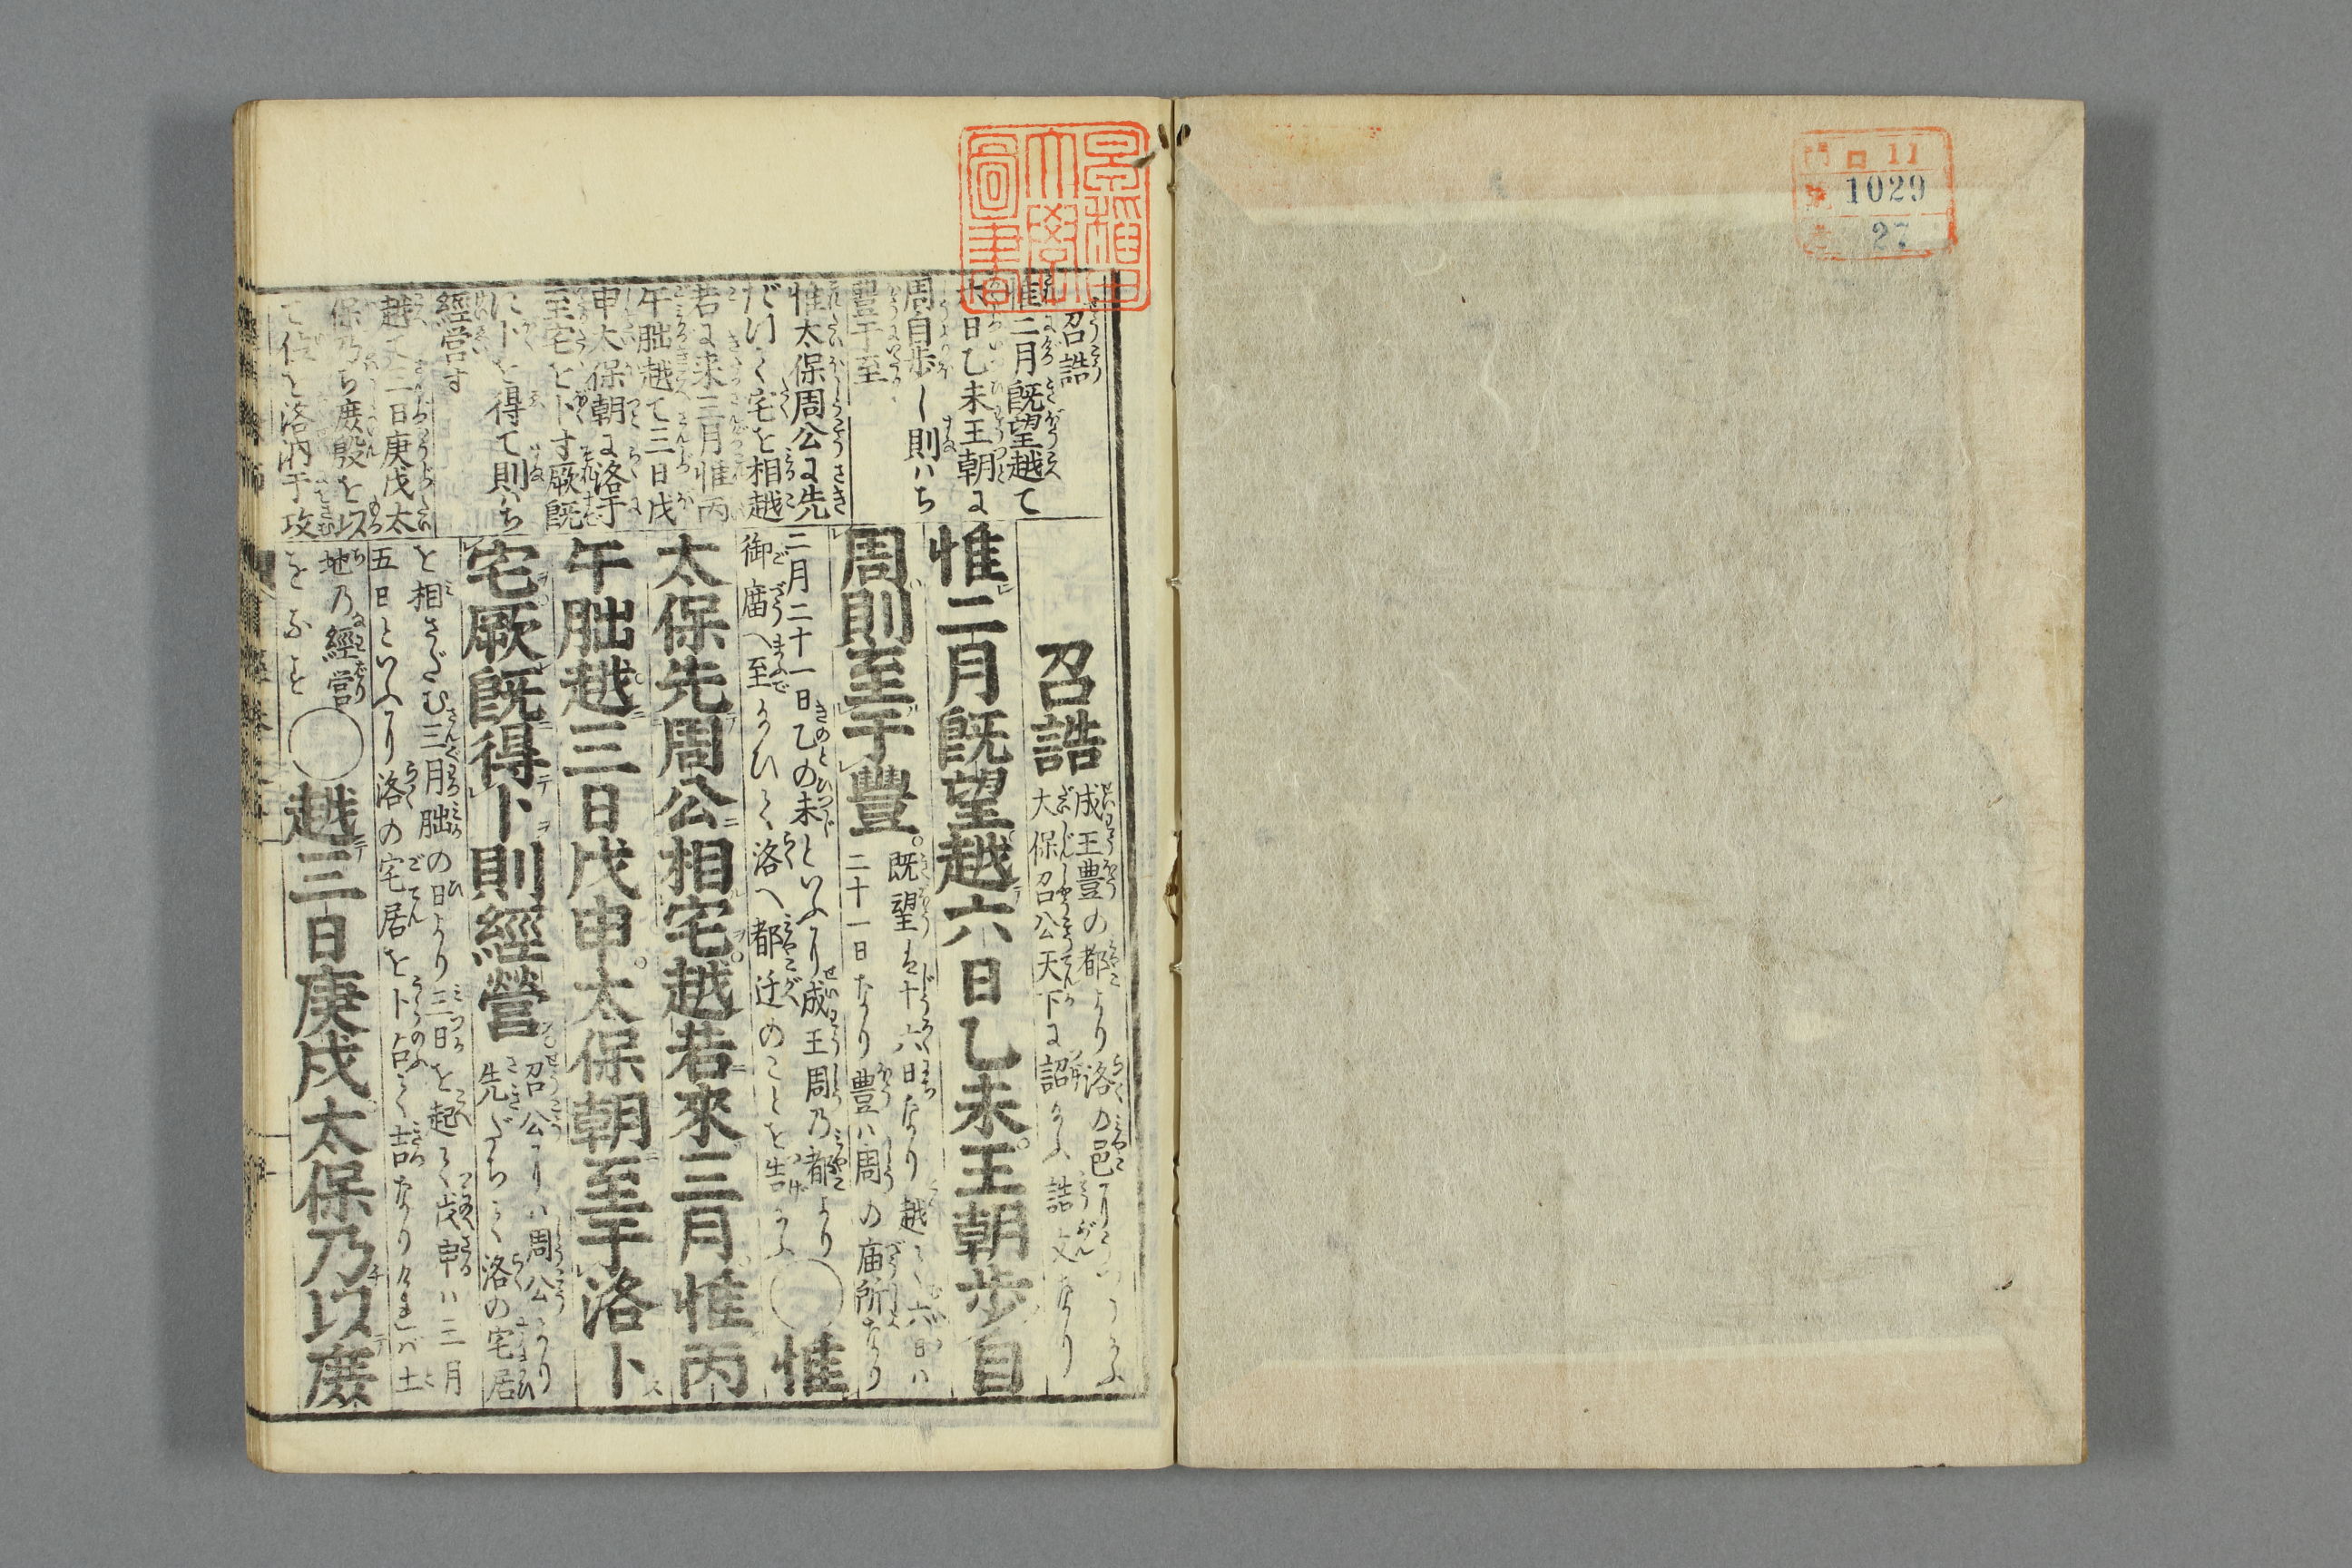 ロ 11
1029
27
早稲田
大學
圖書
召誥
惟二月既望越て
六日乙未王朝に
周自歩し則ハち
豐于至
惟太保周公に先
だつて宅を相越
若に来三月惟丙
午朏越て三日戊
申太保朝に洛于
至宅を卜す厥既
に卜を得て則ハち
經営す
越て三日庚戌太
保乃ち庶殷を以
て位を洛汭于攻
召誥
成王豊の都より洛の邑に
大保召公天下に詔 誥文なり
惟二月既望越六日乙未王朝歩自
周則至于豐
既望は十六日なり越て六日ハ
二十一日なり豊ハ周の庙所なり
二月二十一日乙の未といふに成王周乃都より
御庿へ至 洛へ都迁のことを告
惟
太保先周公相宅越若來三月惟丙
午朏越三日戊申太保朝至于洛卜
宅厥既得卜則經營
召公ハ周公より
先だちて洛の宅居
を相さだむ三月朏の日より三日を起て戊申ハ三月
五日といふに洛の宅居を卜占て吉なり ば土
地乃經営
をなす
越三日庚戌太保乃以庶